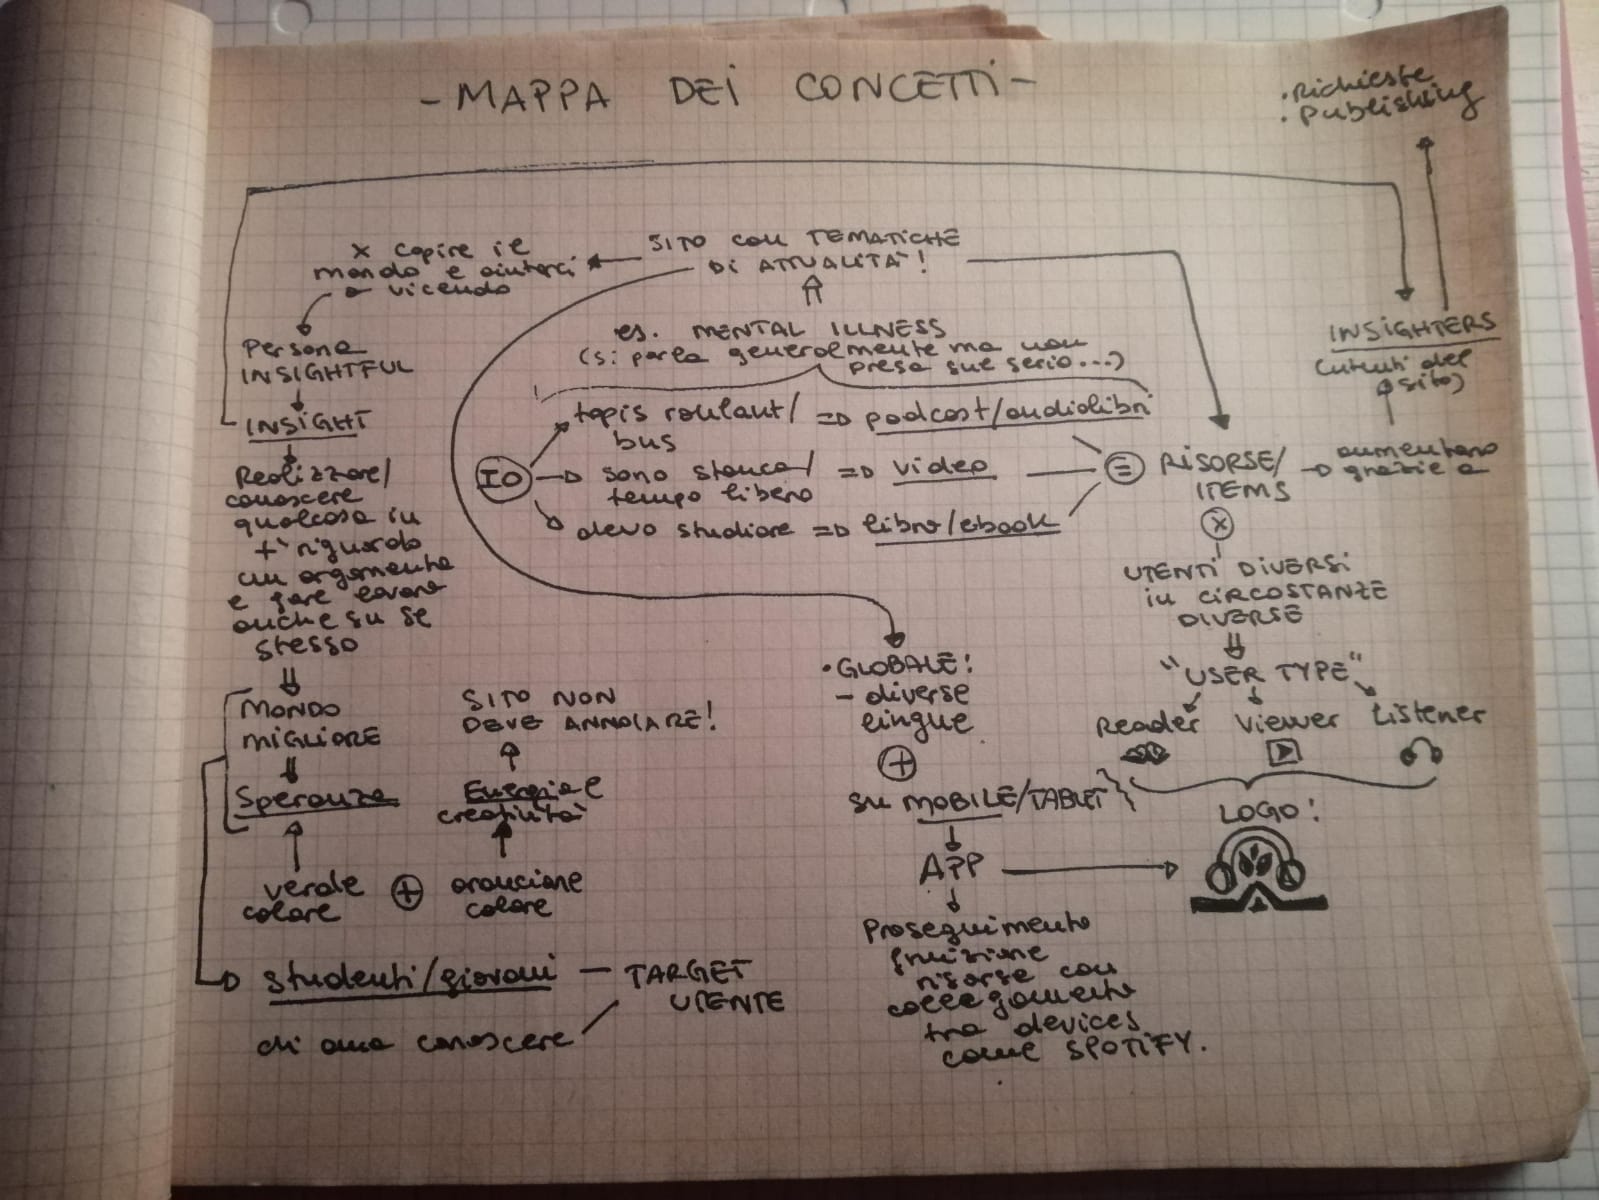 - MAPPA DEI CONCETTI -
. Richieste
. Publishing
SITO CON TEMATICHE
DI ATTUALITÀ!
x capire il
mondo e aiutarci
a vicenda
Persona
INSIGHTFUL
INSIGHT
Realizzare/
conoscere
qualcosa in
+ riguardo
un argomento
e fare
anche su se
stesso
MONDO
MIGLIORE
Speranza
verde
colore
+
arancione
colore
Energia e
creatività
SITO NON
DEVE ANNOIARE!
studenti/giovani — TARGET
UTENTE
chi ama conoscere
es. MENTAL ILLNESS
(si parla generalmente ma non
presa sul serio...)
IO
tapis roulant/
bus
=> podcast/audiolibri
sono stanca/
tempo libero
=> video
devo studiare => libro/ebook
=
RISORSE/
ITEMS
aumentano
grazie a
INSIGHTERS
(utenti del
sito)
x
UTENTI DIVERSI
in CIRCOSTANZE
DIVERSE
"USER TYPE"
Reader Viewer Listener
LOGO!
• GLOBALE!
- diverse
lingue
+
su MOBILE/TABLET
APP
Proseguimento
fruizione
risorse con
collegamento
tra devices
come SPOTIFY.